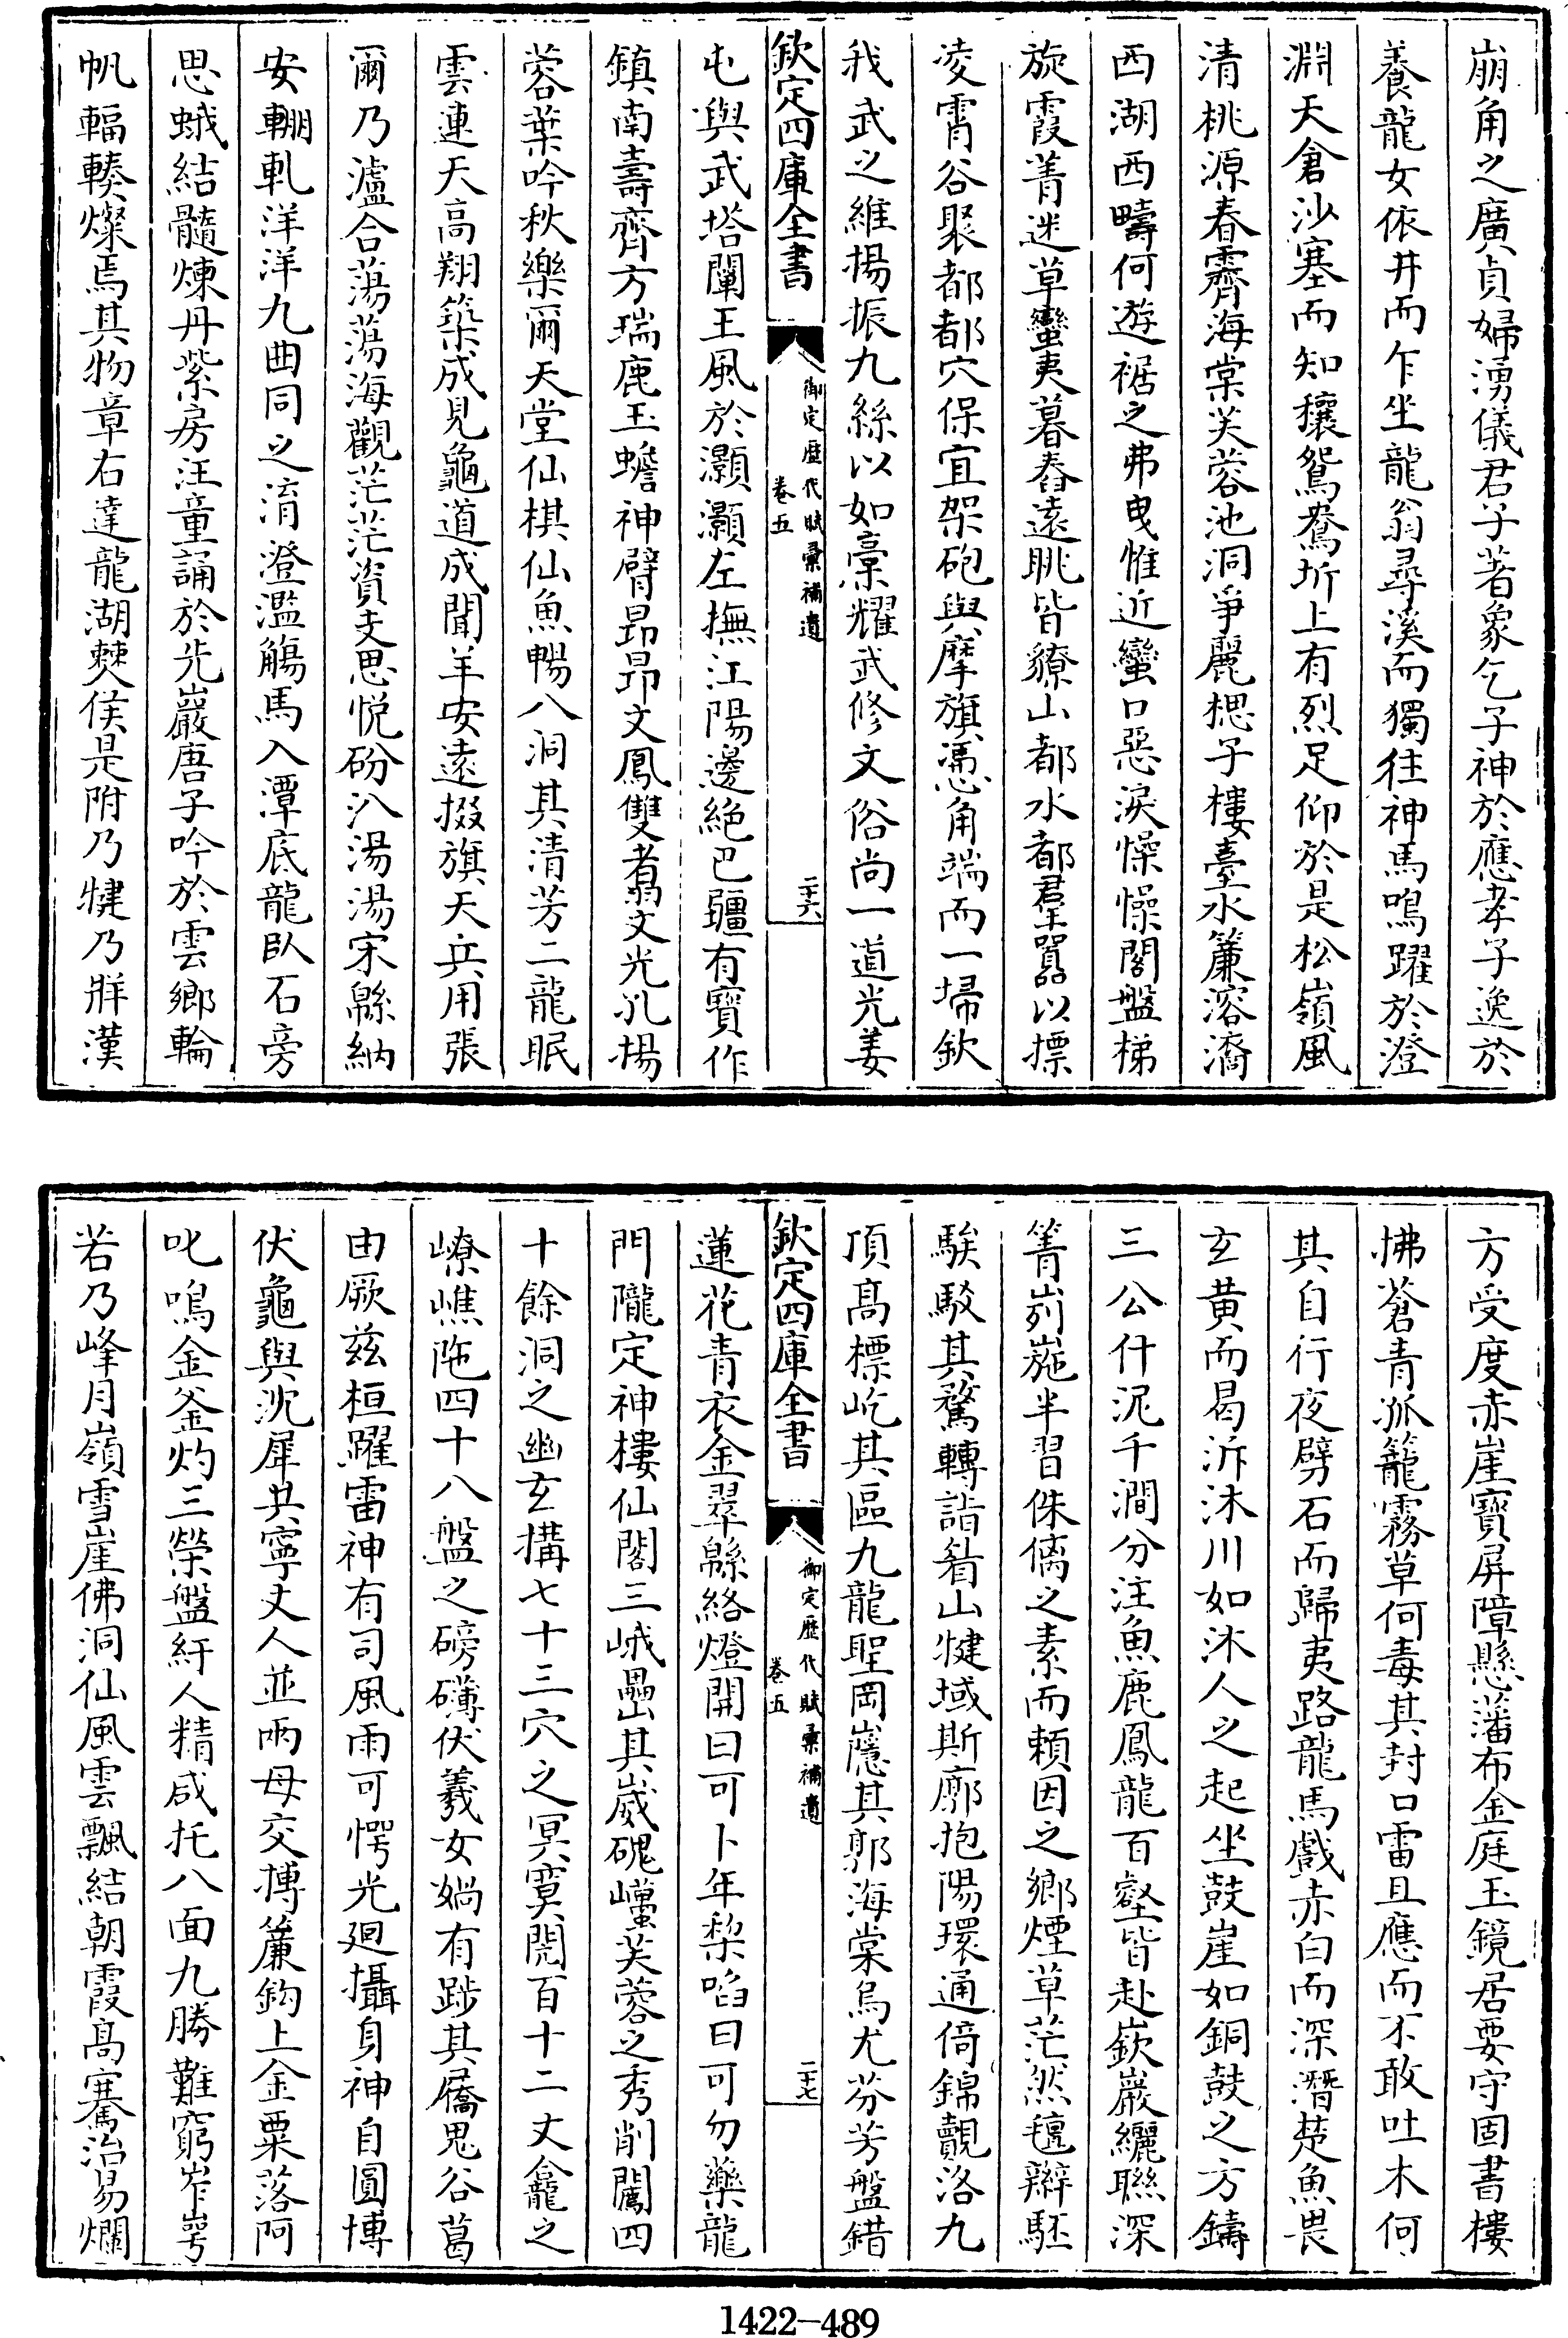 崩角之廣貞婦湧儀君子著象乞子神於應孝子逸於
養龍女依井而乍坐龍翁尋溪而獨往神馬鳴躍於澄
淵天倉沙塞而知穰鴛鴦圻上有烈足仰於是松嶺風
清桃源春霽海棠芙蓉池洞爭麗楒子樓臺水簾溶㵝
西湖西疇何遊裾之弗曳惟近蠻口惡淚懆懆閣盤梯
旋霞菁迷草蠻夷暮舂遠眺皆獠山都水都羣嚚以摽
凌霄谷聚都都穴保宜架砲與摩旗憑角端而一埽欽
我武之維揚振九絲以如稾耀武修文俗尚一道光姜
欽定四庫全書
御定歷代賦彙補遺
卷五
二十六
屯與武塔闡王風於灝灝左撫江陽邊絶巴疆有寶作
鎮南壽齊方瑞鹿玉蟾神臂昂昂文鳳雙翥文光孔揚
蓉葉吟秋樂爾天堂仙棋仙魚暢八洞其清芳二龍眠
雲連天高翔築成見龜道成聞羊安遠掇旗天兵用張
爾乃瀘合蕩蕩海觀茫茫資支思悦砏汃湯湯宋緜納
安輣軋洋洋九曲同之淯澄濫觴馬入潭底龍臥石旁
思蛾結髓煉丹紫房汪童誦於光巖唐子吟於雲鄉輪
帆輻輳燦焉其物章右達龍湖僰侯是附乃犍乃牂漢
方受度赤崖寶屏障懸藩布金庭玉鏡居要守固書樓
拂蒼青狐籠霧草何毒其封口雷且應而不敢吐木何
其自行夜劈石而歸夷路龍馬戲赤白而深潛楚魚畏
玄黄而曷泝沐川如沐人之起坐鼓崖如銅鼓之方鑄
三公什泥千澗分注魚鹿鳳龍百壑皆赴嶔巖纚聯深
箐峛崺半習侏㒧之素而頼因之鄉煙草茫然氊辮駓
騃駁其騖轉詣㫺山犍域斯廓抱陽環通倚錦覿洛九
頂髙標屹其區九龍聖岡嶾其郭海棠烏尤芬芳盤錯
欽定四庫全書
御定歷代賦彙補遺
卷五
二十七
蓮花青衣金翠緜絡燈開曰可卜年梨啗曰可勿藥龍
門隴定神樓仙閣三峨壘其崴磈㠣芙蓉之秀削闖四
十餘洞之幽玄搆七十三穴之冥寞閌百十二丈龕之
嶚嶕陁四十八盤之磅礴伏羲女媧有跡其屩鬼谷葛
由厥兹桓躍雷神有司風雨可愕光廻攝身神自圓博
伏龜與沈犀共寧丈人並兩母交搏簾鈎上金粟落阿
叱鳴金釜灼三榮盤紆人精咸托八面九勝難窮岝崿
若乃峰月嶺雪崖佛洞仙風雲飄結朝霞髙騫治易爛
1422-489